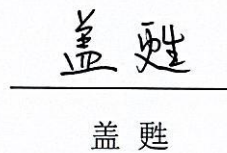 盖甦
盖 甦